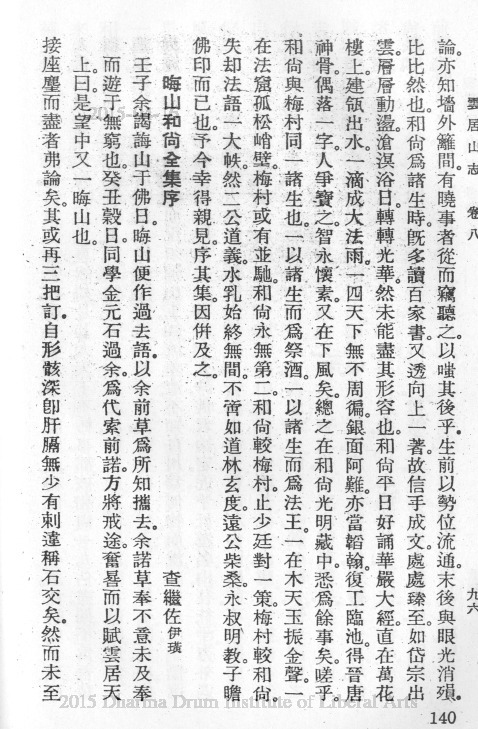 雲居山志　卷八　九六
論。亦知墻外籬間。有曉事者從而竊聽之。以嗤其後乎。生前以勢位流通。末後與眼光消殞。
比比然也。和尙爲諸生時。旣多讀百家書。又透向上一著。故信手成文。處處臻至。如岱宗出
雲。層層動盪。滄溟浴日。轉轉光華。然未能盡其形容也。和尙平日好誦華嚴大經。直在萬花
樓上。建瓴出水。一滴成大法雨。一四天下。無不周徧。銀面阿難。亦當韜翰。復工臨池。得晉唐
神骨。偶落一字。人爭寶之。智永懷素。又在下風矣。總之在和尙光明藏中。悉爲餘事矣。嗟乎。
和尙與梅村同一諸生也。一以諸生而爲祭酒。一以諸生而爲法王。一在木天玉振金聲。一
在法窟孤松峭壁。梅村或有並馳。和尙永無第二。和尙較梅村。止少廷對一策。梅村較和尙。
失却法語一大帙。然二公道義。水乳始終無間。不啻如道林玄度。遠公柴桑。永叔明敎。子瞻
佛印而已也。予今幸得親見。序其集。因倂及之。
晦山和尙全集序　查繼佐伊璜
壬子余謁晦山于佛日。晦山便作過去語。以余前草爲所知攜去。余諾草奉不意未及奉
而遊于無窮也。癸丑穀日。同學金元石過余。爲代索前諾。方將戒途。奮晷而以賦雲居天
上。曰。是望中又一晦山也。
接座麈而盡者弗論矣。其或再三把訂。自形骸深卽肝膈。無少有刺違稱石交矣。然而未至
140
2015 Dharma Drum Institute of Liberal Arts